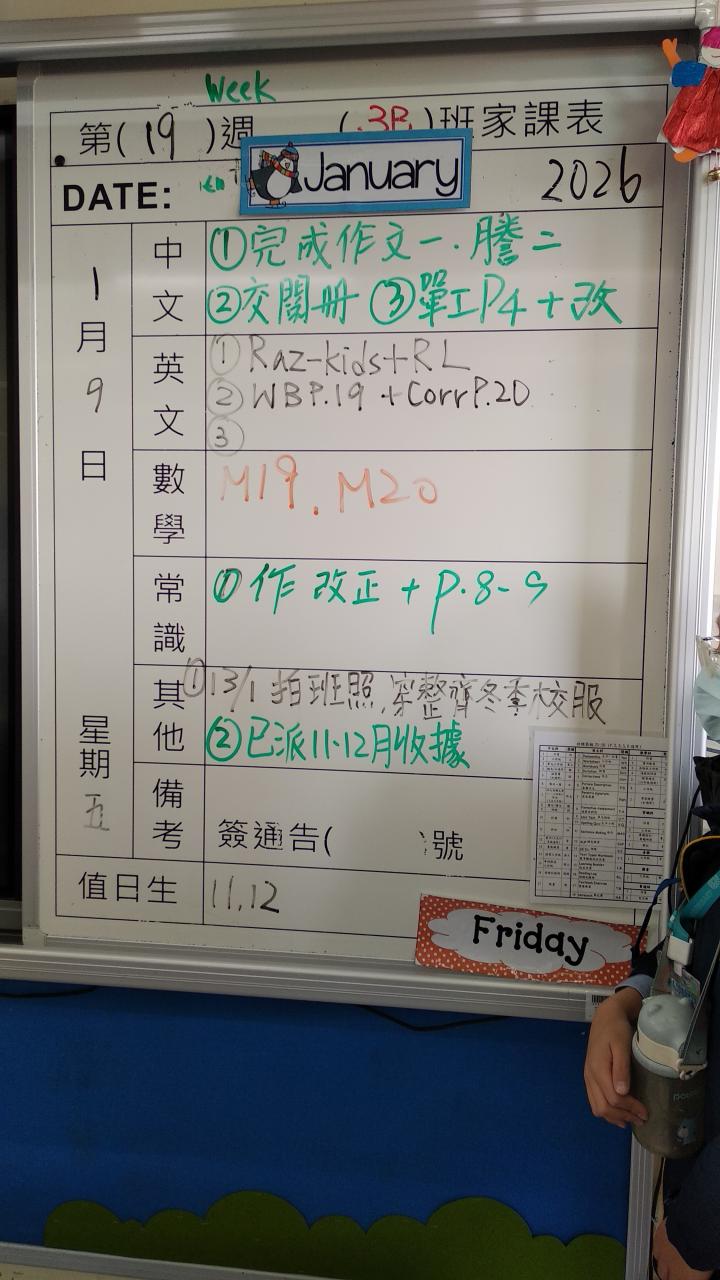 Week
第(19)週 (3B)班家課表
DATE: January 2026
1月9日 星期五
中文 ①完成作文一．謄二
②交閱冊 ③單工P4+改
英文 ① Raz-kids+RL
② WBP.19 + Corr P.20
③
數學 M19. M20
常識 ①作 改正 + p.8-9
其他 ①13/1 拍班照,穿整齊冬季校服
②已派11-12月收據
備考 簽通告( )號
值日生 11,12
Friday